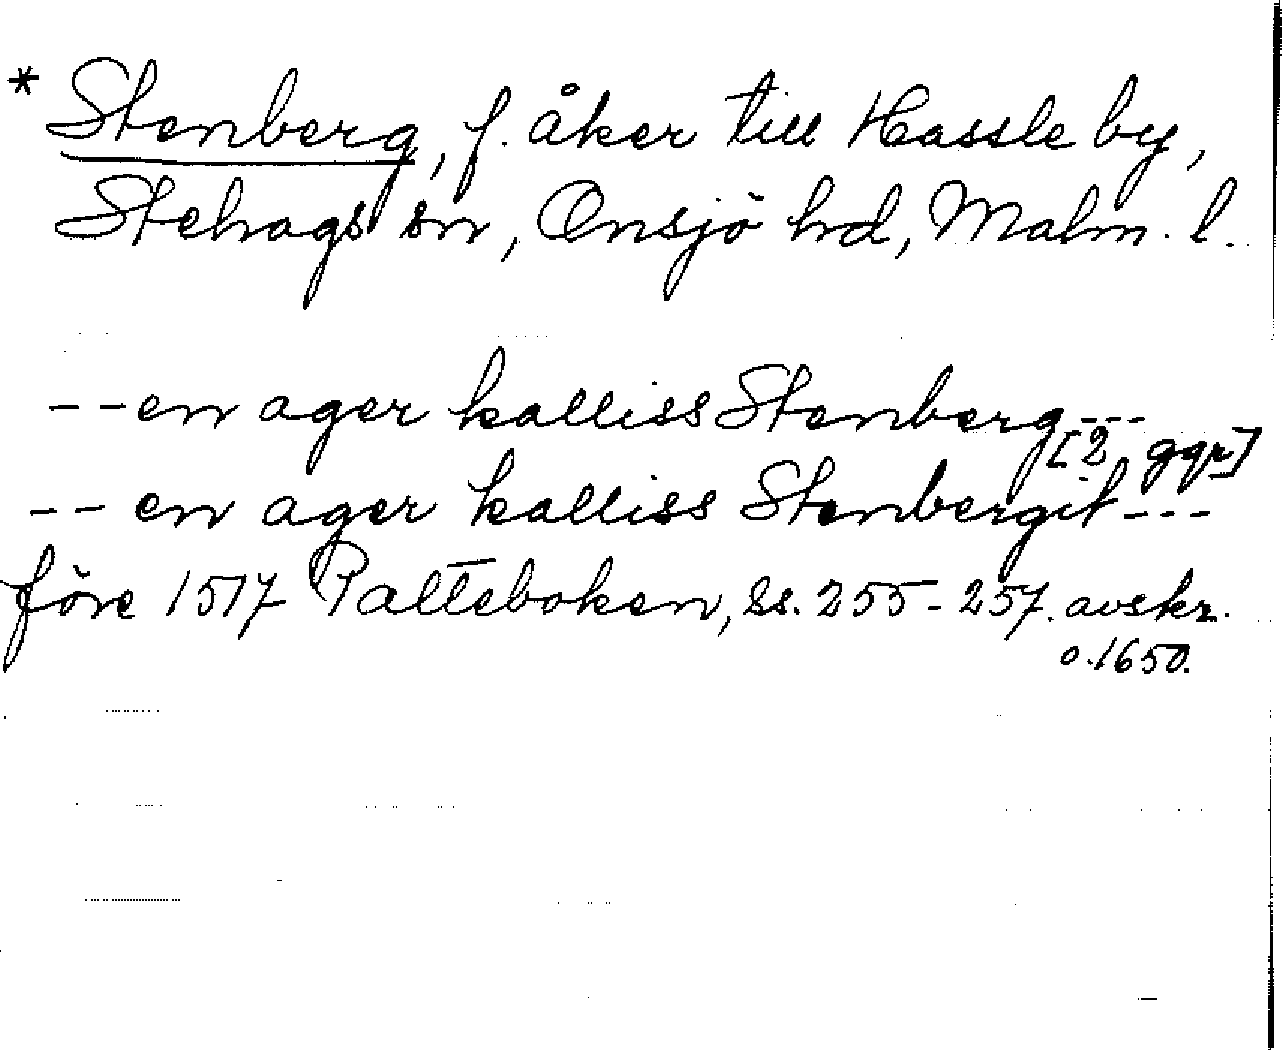 * Stenberg, f. åker till Hassle by,
Stehags sn, Onsjö hd, Malm. l.
-- en ager kalliss Stenberg ---
[2 ggr]
-- en ager kalliss Stenbergit ---
före 1517 Palteboken, ss. 255-257. avskr.
o. 1650.